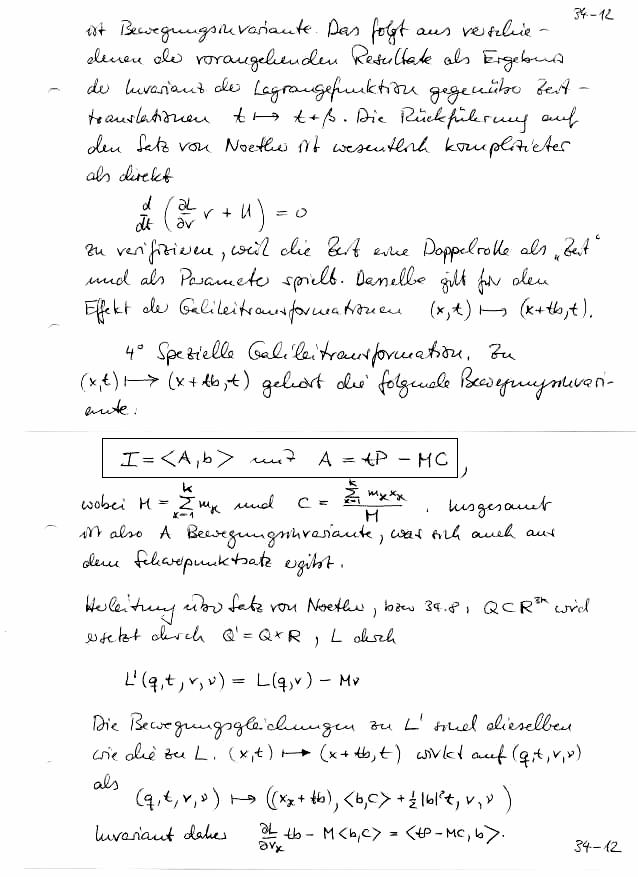 34-12
ist Bewegungsinvariante. Das folgt aus verschie-
denen der vorangehenden Resultate als Ergebnis
der Invarianz der Lagrangefunktion gegenüber Zeit-
translationen t ↦ t+β. Die Rückführung auf
den Satz von Noether ist wesentlich komplizierter
als direkt
d/dt (∂L/∂v v + U) = 0
zu verifizieren, weil die Zeit eine Doppelrolle als „Zeit“
und als Parameter spielt. Dasselbe gilt für den
Effekt der Galileitransformationen (x,t) ↦ (x+tb,t).
4° Spezielle Galileitransformation. Zu
(x,t) ↦ (x+tb,t) gehört die folgende Bewegungsinvari-
ante:
I = <A,b> mit A = tP − MC ,
wobei M = ∑_{κ=1}^{k} m_κ und C = ∑_{κ=1}^{k} m_κ x_κ / M . Insgesamt
ist also A Bewegungsinvariante, was sich auch aus
dem Schwerpunktsatz ergibt.
Herleitung über Satz von Noether, bzw 34.8: Q⊂R^{3k} wird
ersetzt durch Q' = Q×R , L durch
L'(q,t,v,ν) = L(q,v) − Mν
Die Bewegungsgleichungen zu L' sind dieselben
wie die zu L. (x,t) ↦ (x+tb,t) wirkt auf (q,t,v,ν)
als
(q,t,v,ν) ↦ ((x_κ+tb), <b,C> + ½|b|²t, v, ν)
Invariant daher ∂L/∂v_κ tb − M<b,C> = <tP−MC, b>.
34-12